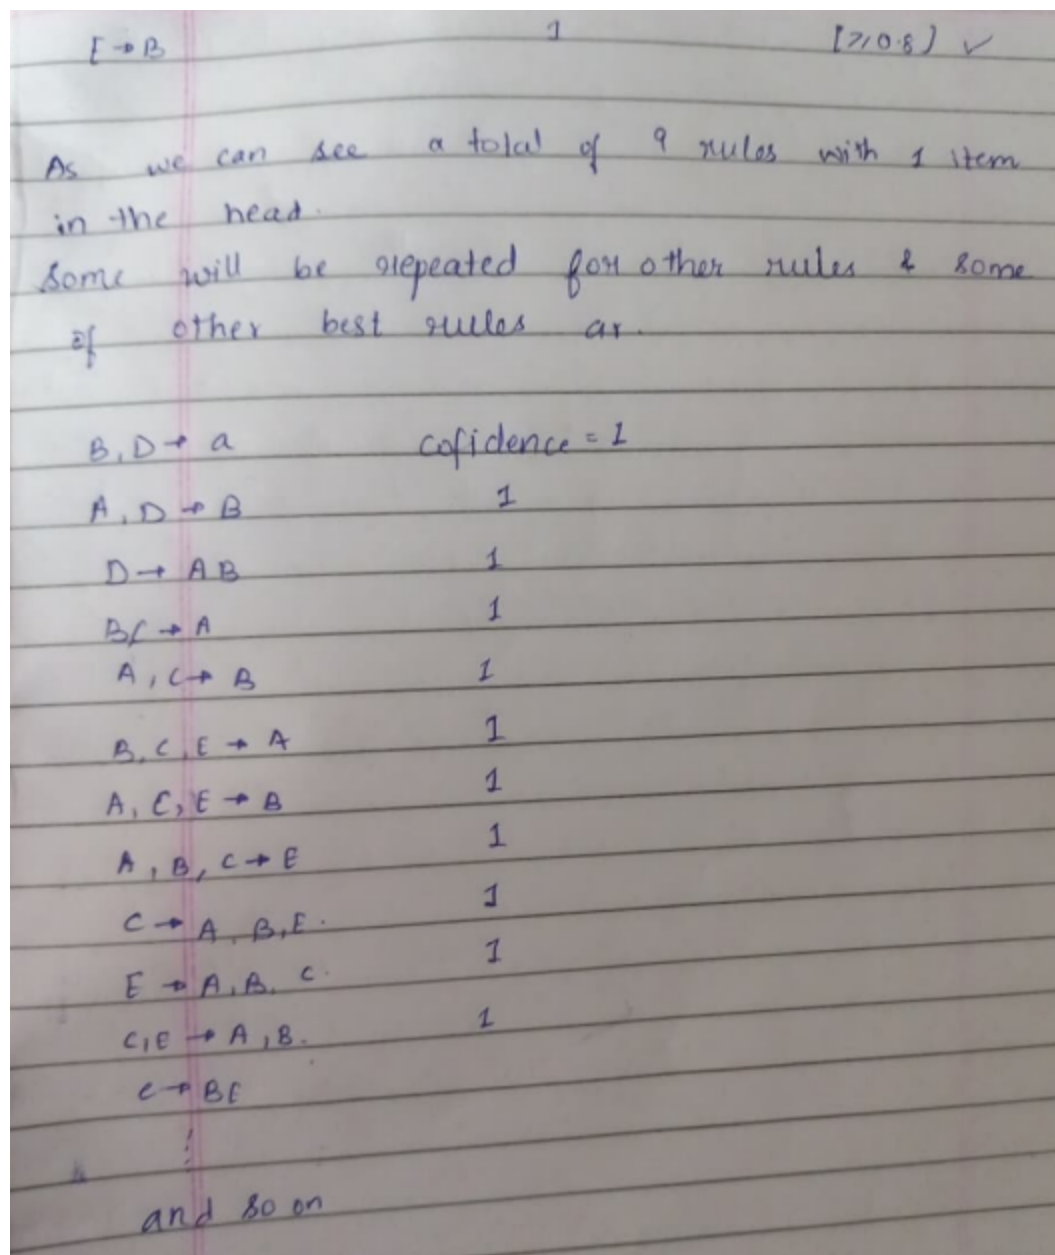 E → B 1 [≥0.8] ✓
As we can see a total of 9 rules with 1 item
in the head.
Some will be repeated for other rules & some
of other best rules ar.
B, D → a cofidence = 1
A, D → B 1
D → A B 1
B C → A 1
A, C → B 1
B, C, E → A 1
A, C, E → B 1
A, B, C → E 1
C → A, B, E. 1
E → A, B, C. 1
C, E → A, B. 1
C → B E
⋮
and so on